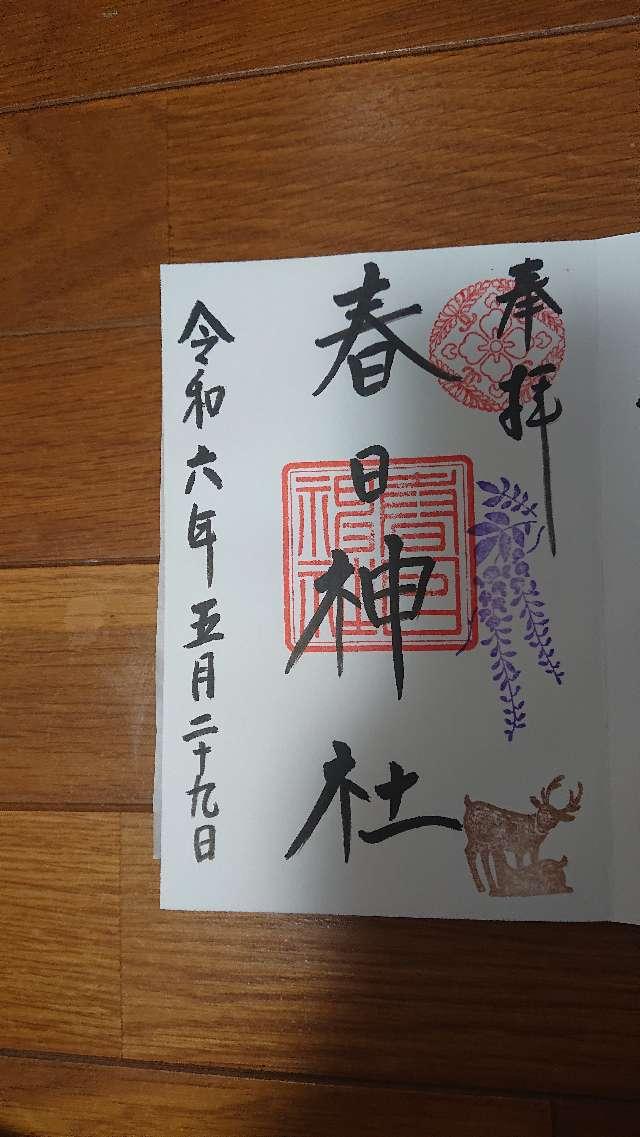 奉拝
春日神社
春日神社
令和六年五月二十九日